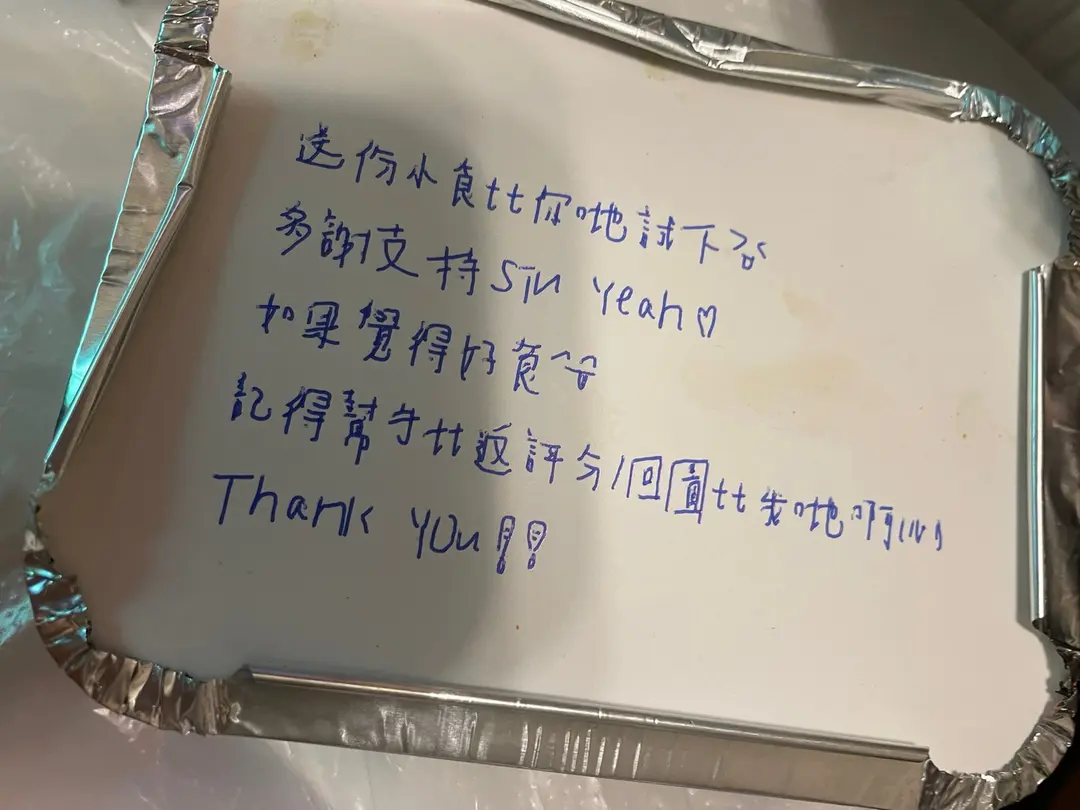 送份小食比你哋試下
多謝支持 Sin Yeah♡
如果覺得好食^^
記得幫手比返評分/回圖比我哋啊
Thank you!!